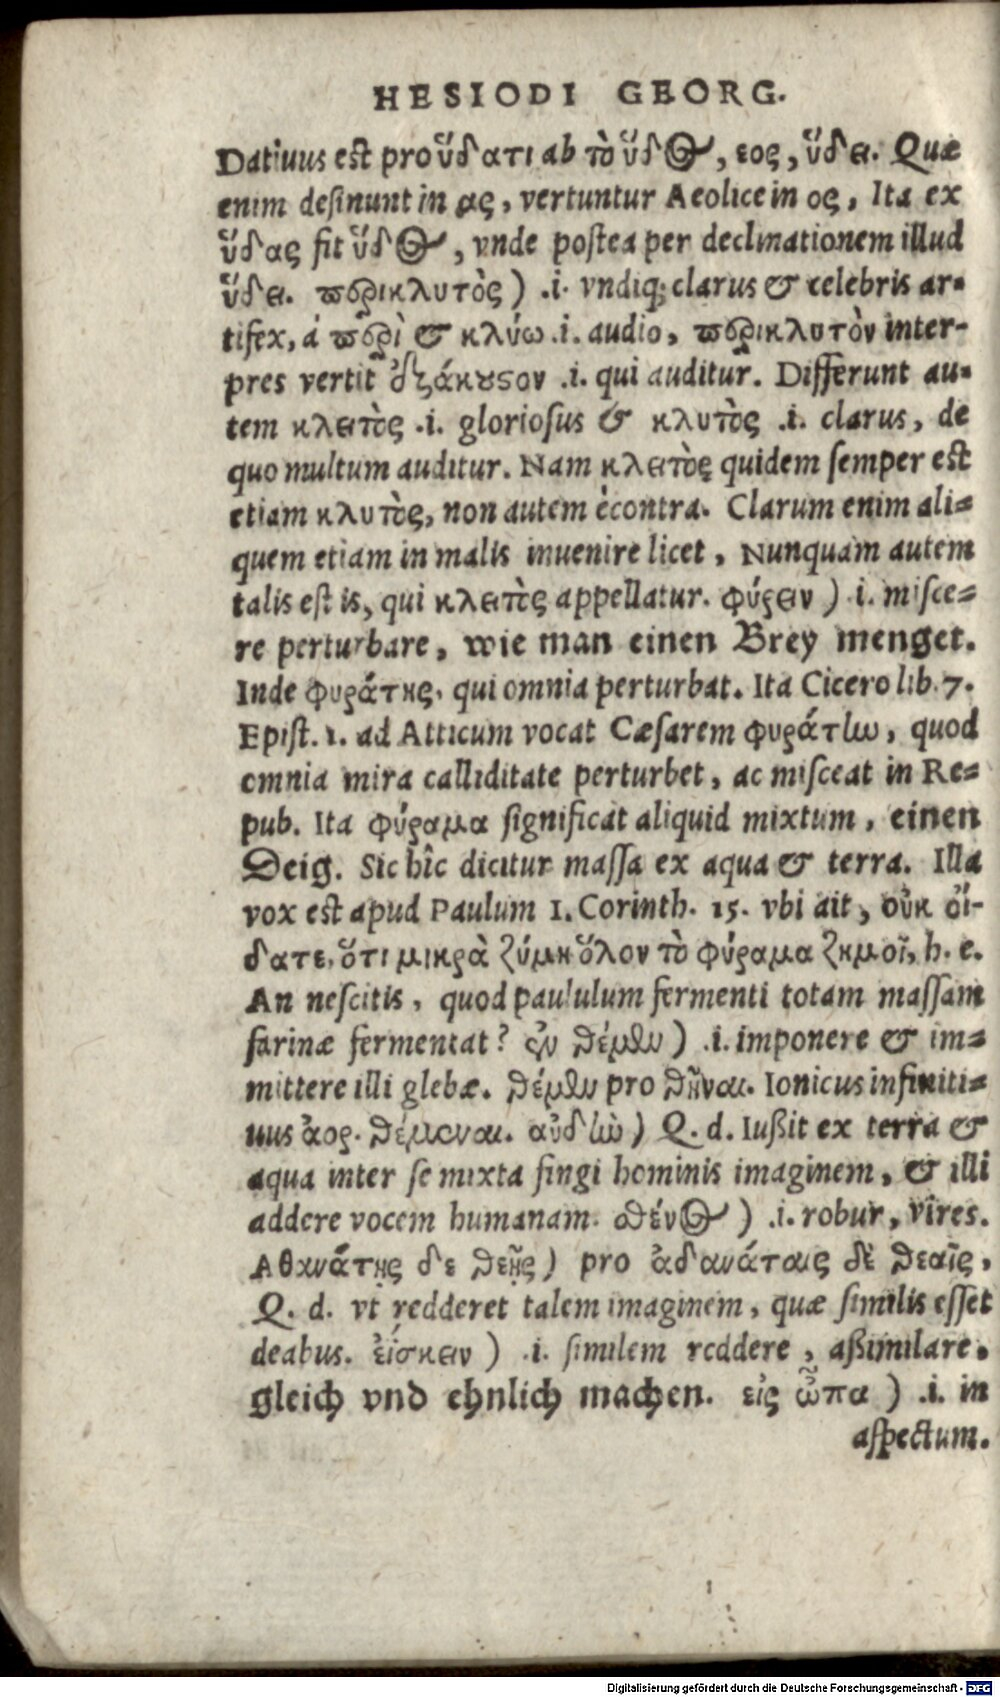 HESIODI GEORG.
Datiuus est pro ὕδατι ab τὸ ὕδος, εος, ὕδει. Quæ
enim desinunt in ας, vertuntur Aeolice in ος, Ita ex
ὕδας fit ὕδος, vnde postea per declinationem illud
ὕδει. περικλυτὸς) .i. vndiq; clarus & celebris ar-
tifex, á περὶ & κλύω .i. audio, περικλυτὸν inter-
pres vertit ὀξάκουστον .i. qui auditur. Differunt au-
tem κλειτὸς .i. gloriosus & κλυτὸς .i. clarus, de
quo multum auditur. Nam κλειτὸς quidem semper est
etiam κλυτὸς, non autem ècontra. Clarum enim ali-
quem etiam in malis inuenire licet, Nunquam autem
talis est is, qui κλειτὸς appellatur. φύρειν) .i. misce-
re perturbare, wie man einen Brey menget.
Inde φυράτης, qui omnia perturbat. Ita Cicero lib. 7.
Epist. 1. ad Atticum vocat Cæsarem φυράτην, quod
omnia mira calliditate perturbet, ac misceat in Re-
pub. Ita φύραμα significat aliquid mixtum, einen
Deig. Sic hîc dicitur massa ex aqua & terra. Illa
vox est apud Paulum 1. Corinth. 15. vbi ait, οὐκ οἴ-
δατε, ὅτι μικρὰ ζύμη ὅλον τὸ φύραμα ζημοῖ, h. e.
An nescitis, quod paululum fermenti totam massam
farinæ fermentat? ἐν θέμεν) .i. imponere & im-
mittere illi glebæ. θέμεν pro θῆναι. Ionicus infiniti-
uus ἀορ. θέμεναι. αὐδὴν) Q. d. Iußit ex terra &
aqua inter se mixta fingi hominis imaginem, & illi
addere vocem humanam. σθένος) .i. robur, vîres.
Αθανάτῃς δε θεῇς) pro ἀδανάταις δὲ θεαῖς,
Q. d. vt redderet talem imaginem, quæ similis esset
deabus. ἐΐσκειν) .i. similem reddere, aßimilare.
gleich vnd ehnlich machen. εἰς ὦπα) .i. in
aspectum.
Digitalisierung gefördert durch die Deutsche Forschungsgemeinschaft - DFG